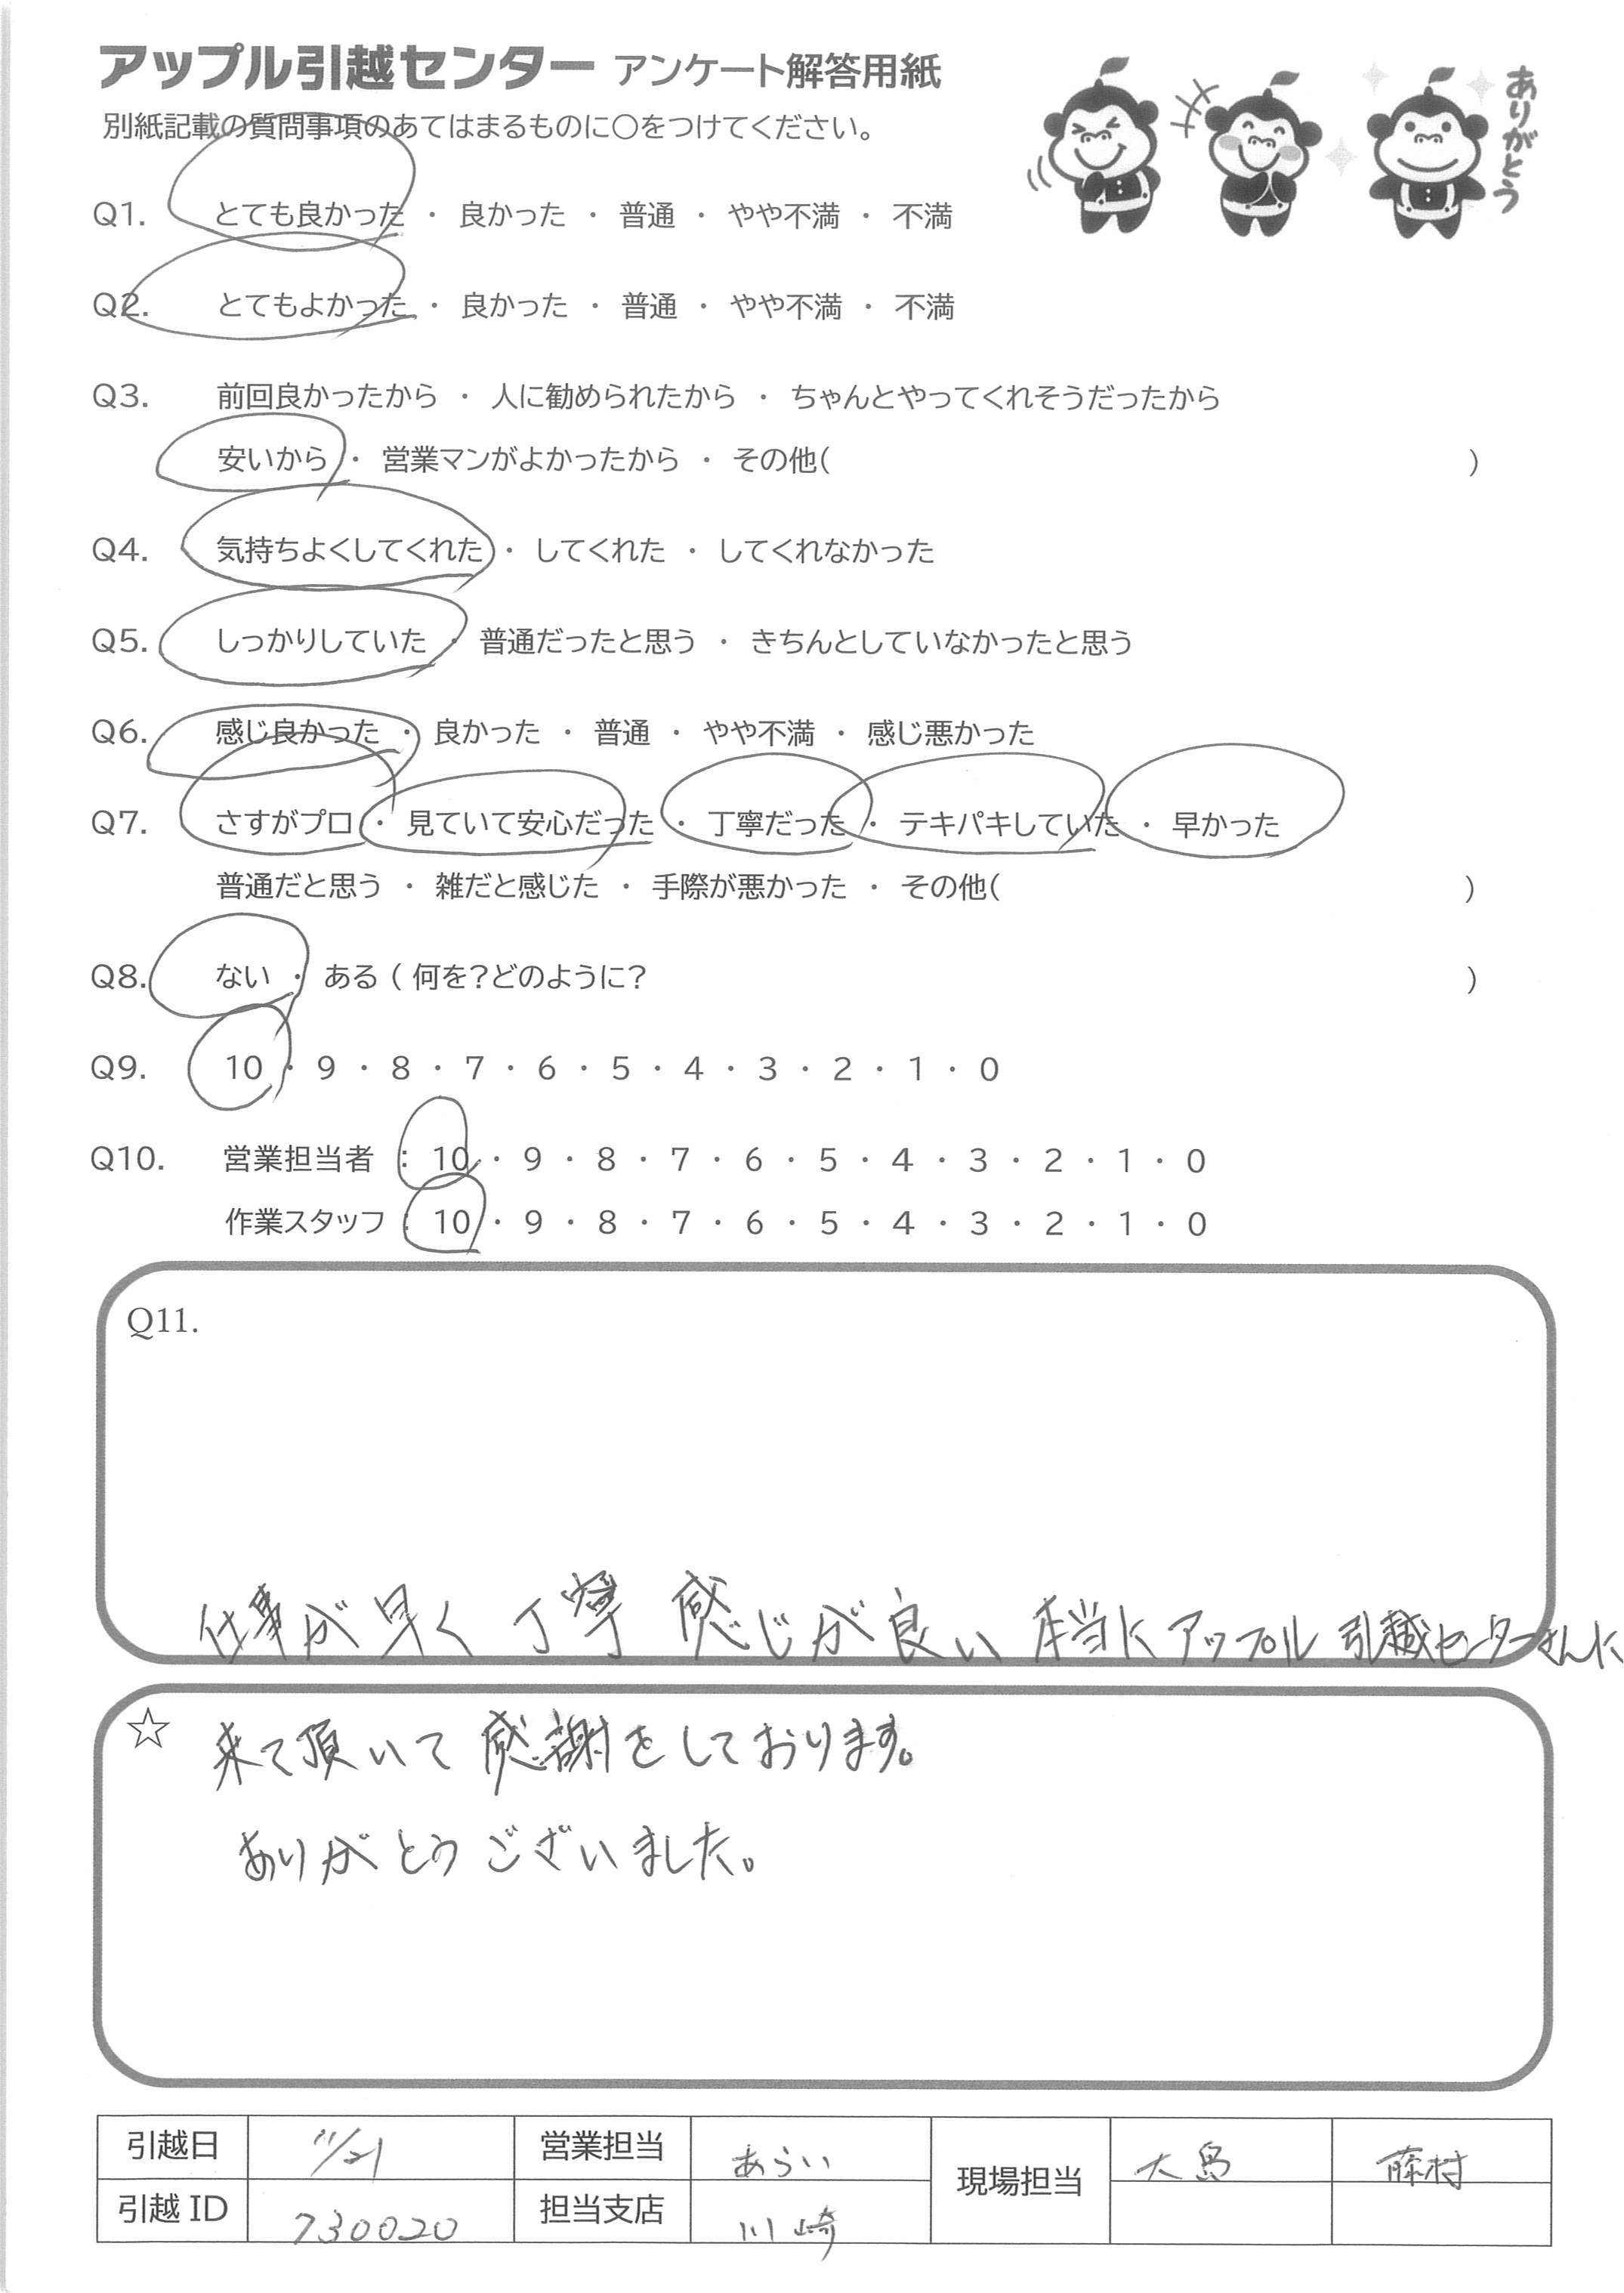 アップル引越センター アンケート解答用紙
ありがとう
別紙記載の質問事項のあてはまるものに○をつけてください。
Q1. とても良かった ・ 良かった ・ 普通 ・ やや不満 ・ 不満
Q2. とてもよかった ・ 良かった ・ 普通 ・ やや不満 ・ 不満
Q3. 前回良かったから ・ 人に勧められたから ・ ちゃんとやってくれそうだったから
安いから ・ 営業マンがよかったから ・ その他( )
Q4. 気持ちよくしてくれた ・ してくれた ・ してくれなかった
Q5. しっかりしていた ・ 普通だったと思う ・ きちんとしていなかったと思う
Q6. 感じ良かった ・ 良かった ・ 普通 ・ やや不満 ・ 感じ悪かった
Q7. さすがプロ ・ 見ていて安心だった ・ 丁寧だった ・ テキパキしていた ・ 早かった
普通だと思う ・ 雑だと感じた ・ 手際が悪かった ・ その他( )
Q8. ない ・ ある ( 何を?どのように? )
Q9. 10 ・ 9 ・ 8 ・ 7 ・ 6 ・ 5 ・ 4 ・ 3 ・ 2 ・ 1 ・ 0
Q10. 営業担当者 : 10 ・ 9 ・ 8 ・ 7 ・ 6 ・ 5 ・ 4 ・ 3 ・ 2 ・ 1 ・ 0
作業スタッフ : 10 ・ 9 ・ 8 ・ 7 ・ 6 ・ 5 ・ 4 ・ 3 ・ 2 ・ 1 ・ 0
Q11.
仕事が早く 丁寧 感じが良い 本当に アップル 引越センターさんに
☆ 来て頂いて 感謝をしております。
ありがとう ございました。
引越日 11/21 営業担当 あらい 現場担当 大島 藤村
引越ID 730020 担当支店 川崎